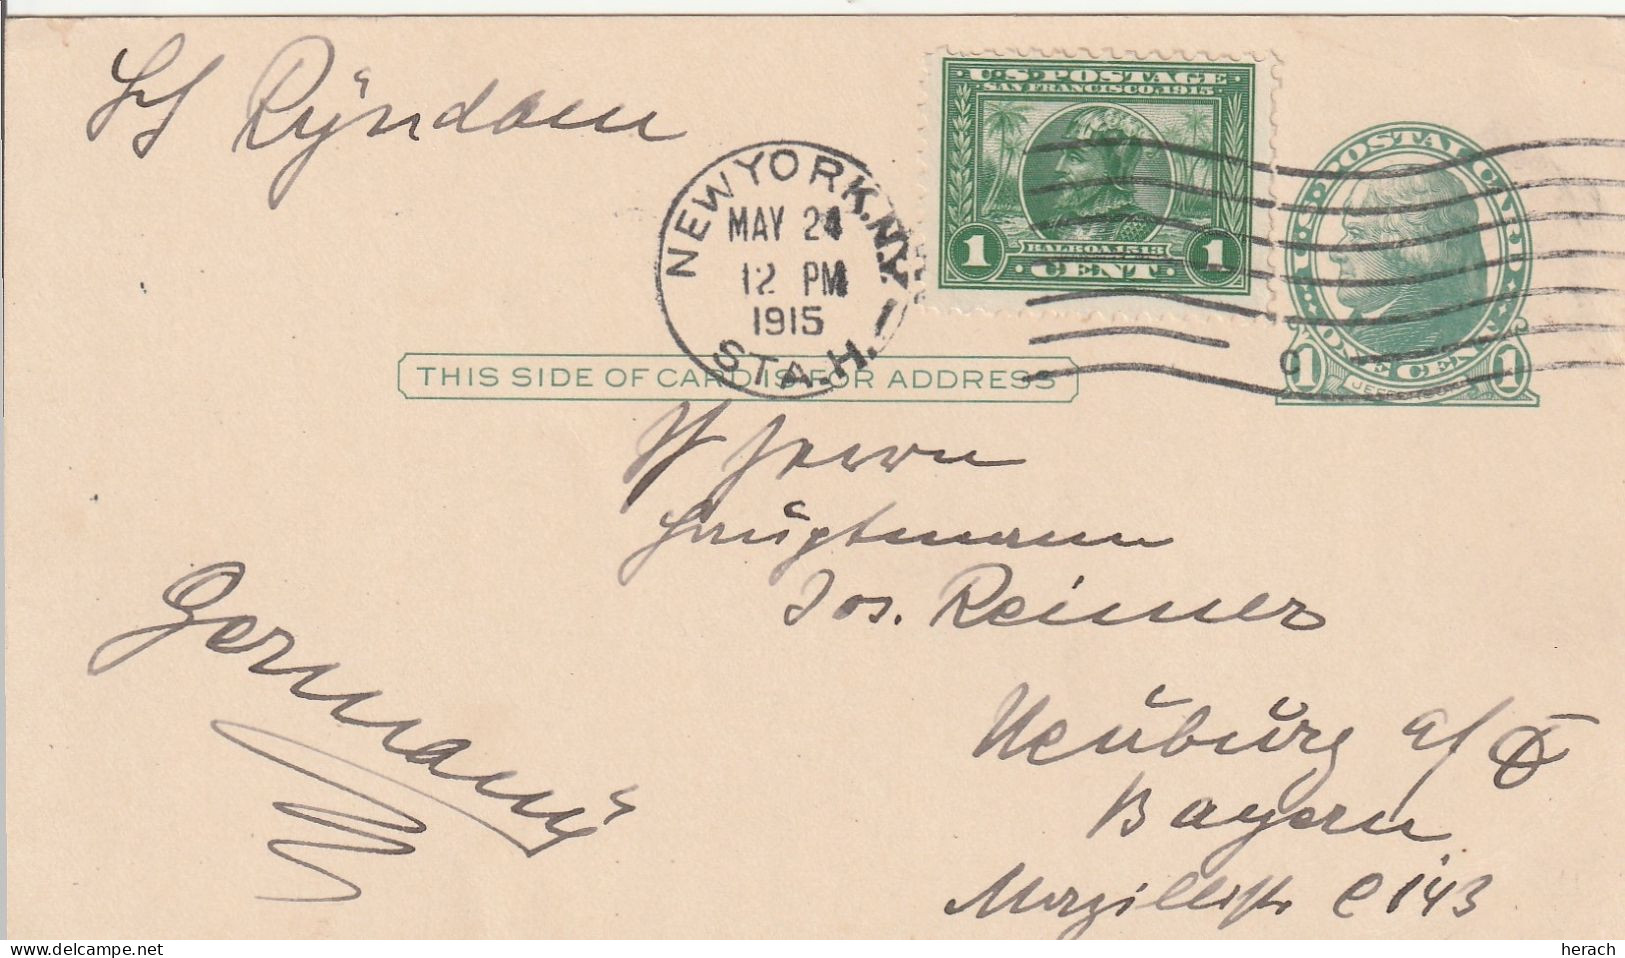 SS Ryndam
U.S. POSTAGE
SAN FRANCISCO, 1915
BALBOA, 1513
1 CENT 1
NEW YORK, N.Y.
MAY 24
12 PM
1915
STA. H.
C
U.S. POSTAL CARD
1 ONE CENT 1
JEFFERSON
THIS SIDE OF CARD IS FOR ADDRESS
Herrn
Hauptmann
Jos. Reimer
Neuburg a/D
Bayern
C 143
Germany
delcampe.net
herach